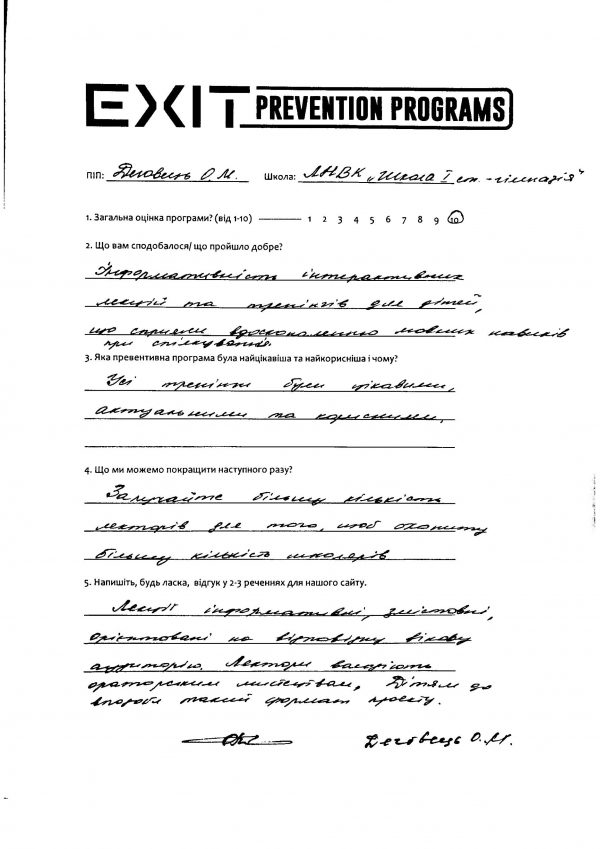 EXIT PREVENTION PROGRAMS
ПІП: Деговець О.М. Школа: ЛНВК „Школа І ст.-гімназія"
1. Загальна оцінка програми? (від 1-10) 1 2 3 4 5 6 7 8 9 10
2. Що вам сподобалося/ що пройшло добре?
Інформативність інтерактивних
лекцій та тренінгів для дітей,
що сприяли вдосконаленню мовних навиків
при спілкуванні.
3. Яка превентивна програма була найцікавіша та найкорисніша і чому?
Усі тренінги були цікавими,
актуальними та корисними.
4. Що ми можемо покращити наступного разу?
Залучайте більшу кількість
лекторів для того, щоб охопити
більшу кількість школярів
5. Напишіть, будь ласка, відгук у 2-3 реченнях для нашого сайту.
Лекції інформативні, змістовні,
орієнтовані на відповідну вікову
аудиторію. Лектори володіють
ораторським мистецтвом. Дітям до
вподоби такий формат проекту.
Деговець О.М.